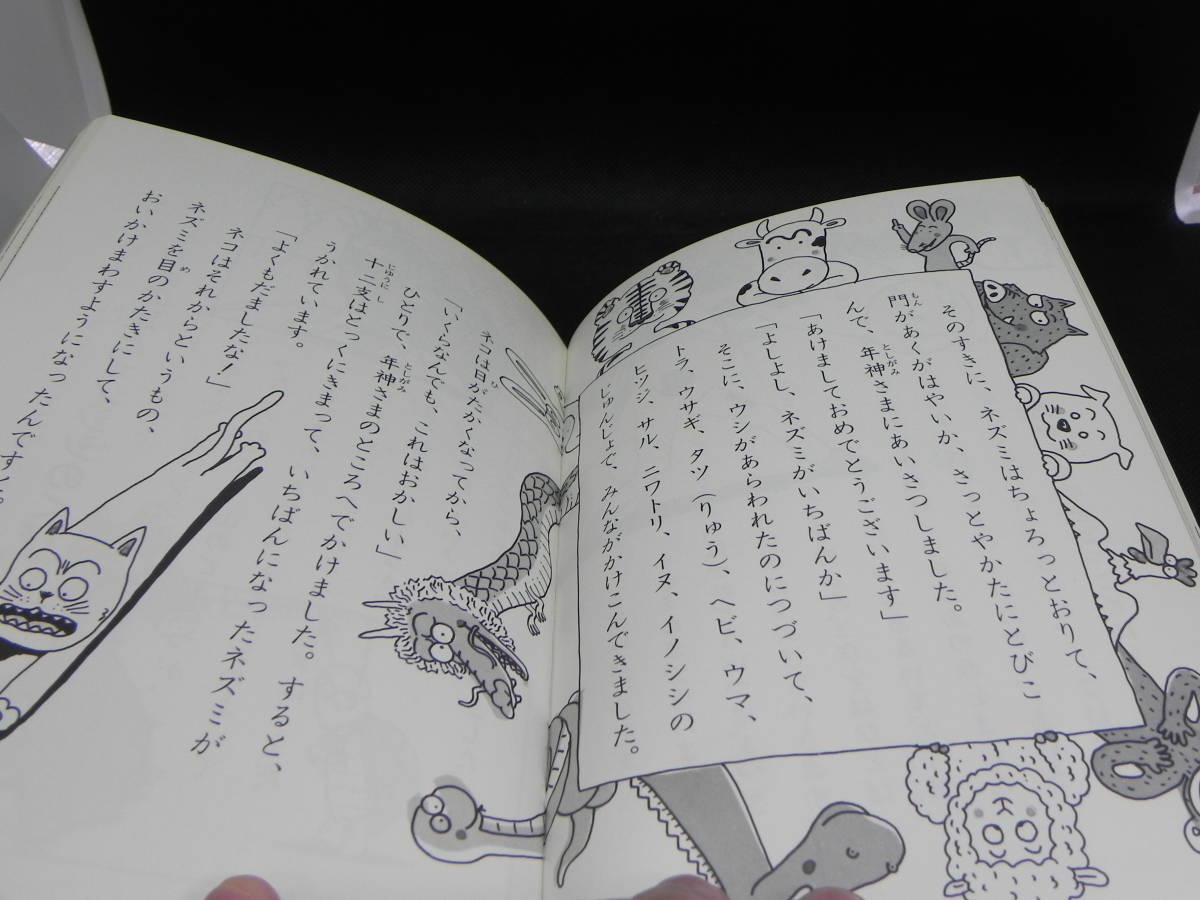 そのすきに、ネズミはちょろっとおりて、
門があくがはやいか、さっとやかたにとびこ
んで、年神さまにあいさつしました。
「あけましておめでとうございます」
「よしよし、ネズミがいちばんか」
そこに、ウシがあらわれたのにつづいて、
トラ、ウサギ、タツ（りゅう）、ヘビ、ウマ、
ヒツジ、サル、ニワトリ、イヌ、イノシシの
じゅんじょで、みんながかけこんできました。
ネコは日がたかくなってから、
「いくらなんでも、これはおかしい」
ひとりで、年神さまのところへでかけました。すると、
十二支はとっくにきまって、いちばんになったネズミが
うかれています。
「よくもだましたな！」
ネコはそれからというもの、
ネズミを目のかたきにして、
おいかけまわすようになったんです